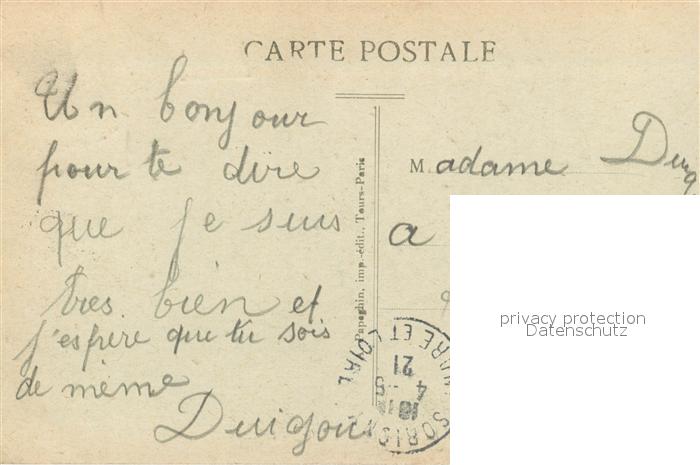 CARTE POSTALE
Un bonjour
pour te dire
que je suis
très bien et
j'espère que tu sois
de même
Duigou
Papeghin, imp.-édit., Tours-Paris
Madame
a
privacy protection
Datenschutz
LOIRE ET CHER
4-5
21